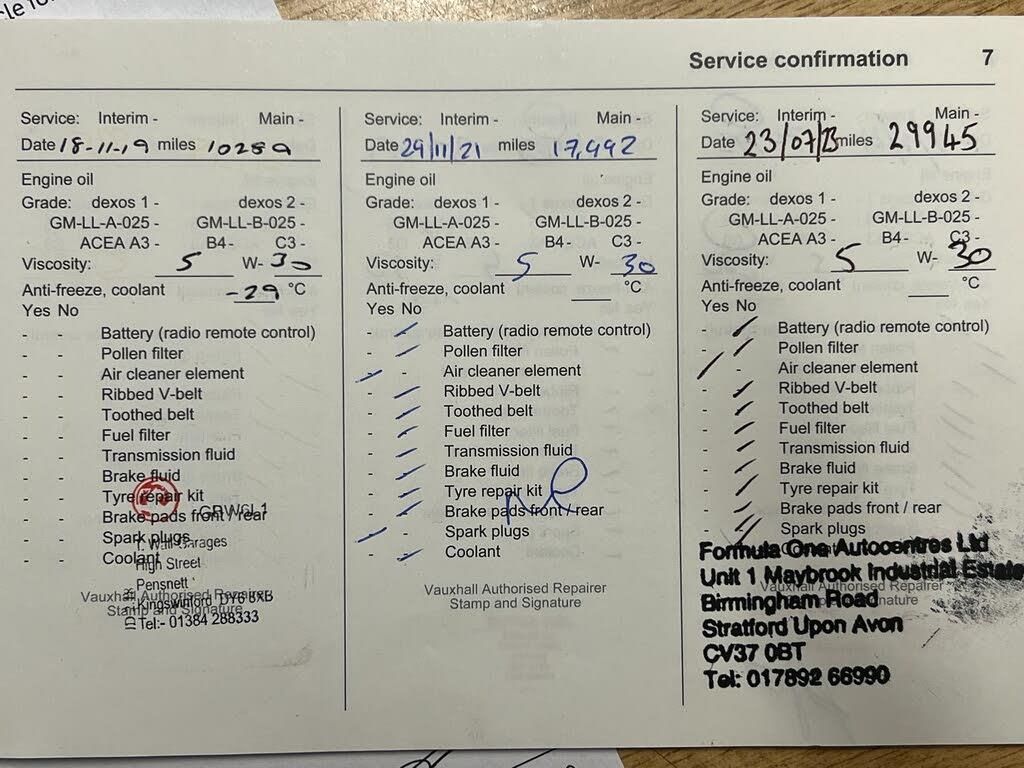 Service confirmation 7
Service: Interim - Main -
Date 18-11-19 miles 10289
Engine oil
Grade: dexos 1 - dexos 2 -
GM-LL-A-025 - GM-LL-B-025 -
ACEA A3 - B4 - C3 -
Viscosity: 5 W- 30
Anti-freeze, coolant -29 °C
Yes No
- - Battery (radio remote control)
- - Pollen filter
- - Air cleaner element
- - Ribbed V-belt
- - Toothed belt
- - Fuel filter
- - Transmission fluid
- - Brake fluid
- - Tyre repair kit
- - Brake pads front / rear
- - Spark plugs
- - Coolant
Vauxhall Authorised Repairer
Stamp and Signature
Garages
High Street
Pensnett
Kingswinford DY6 8XB
Tel:- 01384 288333
Service: Interim - Main -
Date 29/11/21 miles 17,992
Engine oil
Grade: dexos 1 - dexos 2 -
GM-LL-A-025 - GM-LL-B-025 -
ACEA A3 - B4 - C3 -
Viscosity: 5 W- 30
Anti-freeze, coolant °C
Yes No
- - Battery (radio remote control)
- - Pollen filter
- - Air cleaner element
- - Ribbed V-belt
- - Toothed belt
- - Fuel filter
- - Transmission fluid
- - Brake fluid
- - Tyre repair kit
- - Brake pads front / rear
- - Spark plugs
- - Coolant
Vauxhall Authorised Repairer
Stamp and Signature
Service: Interim - Main -
Date 23/07/23 miles 29945
Engine oil
Grade: dexos 1 - dexos 2 -
GM-LL-A-025 - GM-LL-B-025 -
ACEA A3 - B4 - C3 -
Viscosity: 5 W- 30
Anti-freeze, coolant °C
Yes No
- - Battery (radio remote control)
- - Pollen filter
- - Air cleaner element
- - Ribbed V-belt
- - Toothed belt
- - Fuel filter
- - Transmission fluid
- - Brake fluid
- - Tyre repair kit
- - Brake pads front / rear
- - Spark plugs
Formula One Autocentres Ltd
Unit 1 Maybrook Industrial Estate
Birmingham Road
Stratford Upon Avon
CV37 0BT
Tel: 017892 66990
Vauxhall Authorised Repairer
Signature